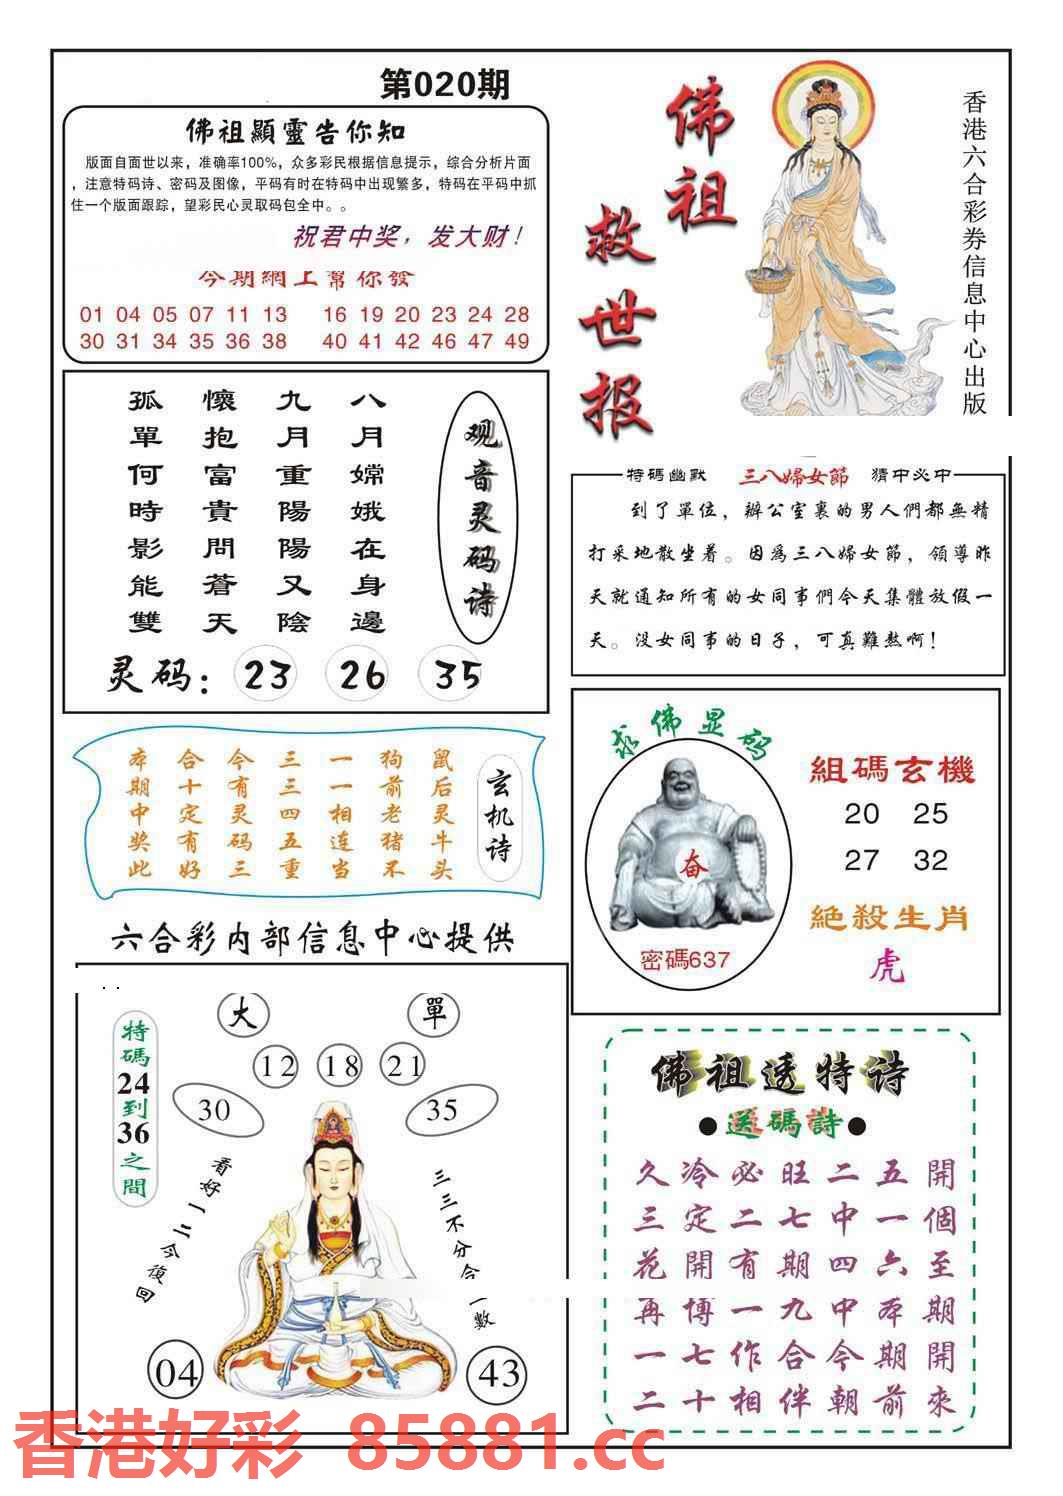 第020期
佛祖顯靈告你知
版面自面世以来，准确率100%，众多彩民根据信息提示，综合分析片面
，注意特码诗、密码及图像，平码有时在特码中出现繁多，特码在平码中抓
住一个版面跟踪，望彩民心灵取码包全中。。
祝君中奖，发大财！
今期網上幫你發
01 04 05 07 11 13 16 19 20 23 24 28
30 31 34 35 36 38 40 41 42 46 47 49
佛祖
救世报
香港六合彩券信息中心出版
观音灵码诗
八月嫦娥在身邊
九月重陽陽又陰
懷抱富貴問蒼天
孤單何時影能雙
灵码：23 26 35
特碼幽默 三八婦女節 猜中必中
到了單位，辦公室裏的男人們都無精
打采地散坐着。因爲三八婦女節，領導昨
天就通知所有的女同事們今天集體放假一
天。没女同事的日子，可真難熬啊！
玄机诗
鼠后灵牛头
狗前老猪不
一一相连当
三三四五重
今有灵码三
合十定有好
本期中奖此
求佛显码
奋
密碼637
組碼玄機
20 25
27 32
絶殺生肖
虎
六合彩内部信息中心提供
特碼24到36之間
大 單
12 18 21
30 35
看好一二今復回
三三不分合一數
04 43
佛祖透特诗
●送碼詩●
久冷必旺二五開
三定二七中一個
花開有期四六至
再博一九中本期
一七作合今期開
二十相伴朝前來
香港好彩 85881.cc